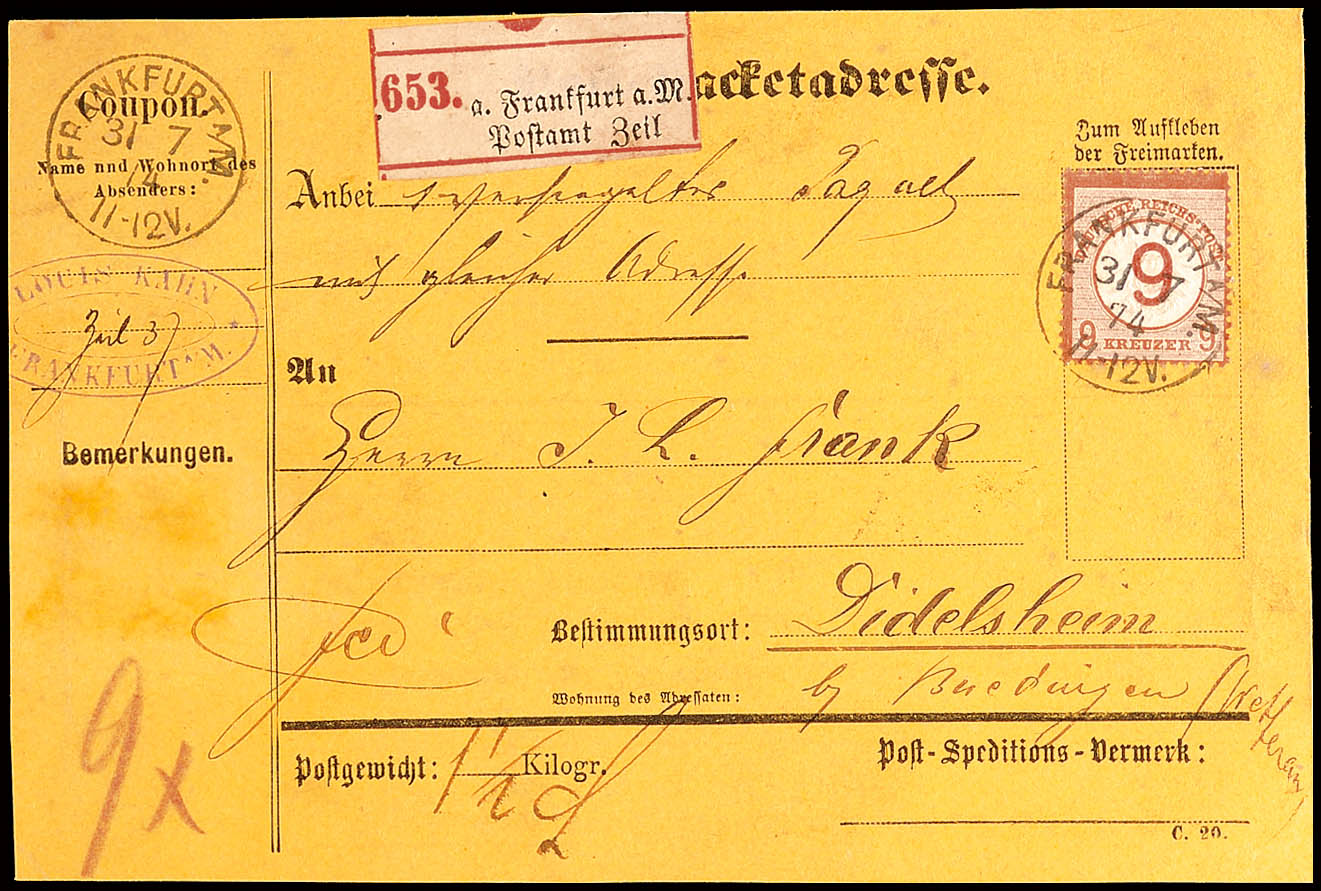 Coupon.
FRANKFURT A/M.
31 7
74
11-12V.
Name nnd Wohnort des
Absenders:
LOUIS KAHN
Zeil 37
FRANKFURT A/M.
Bemerkungen.
9x
653. a. Frankfurt a.M.
Postamt Zeil
acketadresse.
Anbei 1 versiegeltes Paquet
mit gleicher Adresse
An
Herrn J. L. Frank
Bestimmungsort: Didelsheim
Wohnung des Adressaten: by Buedingen (Wetterau)
fco
Postgewicht: Kilogr.
Post-Speditions-Vermerk:
C. 20.
Zum Aufkleben
der Freimarken.
DEUTSCHE REICHS-POST
9
9 KREUZER 9
FRANKFURT A/M.
31 7
74
11-12V.